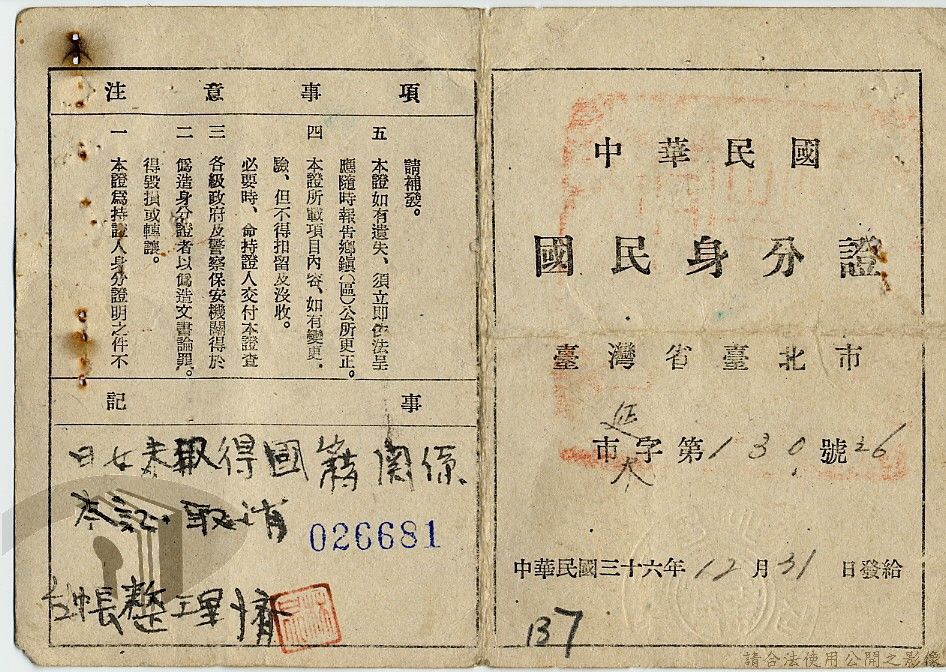 中華民國
國民身分證
臺灣省臺北市
延
市字第130號26
中華民國三十六年12月31日發給
137
注意事項
一 本證爲持證人身分證明之件不
得毀損或轉讓。
二 僞造身分證者以僞造文書論罪。
三 各級政府及警察保安機關得於
必要時、命持證人交付本證查
驗、但不得扣留及沒收。
四 本證所載項目內容、如有變更、
應隨時報告鄉鎮(區)公所更正。
五 本證如有遺失、須立即依法呈
請補發。
記事
日女未取得國籍關係
本記取消
026681
台帳整理濟
請合法使用公開之影像